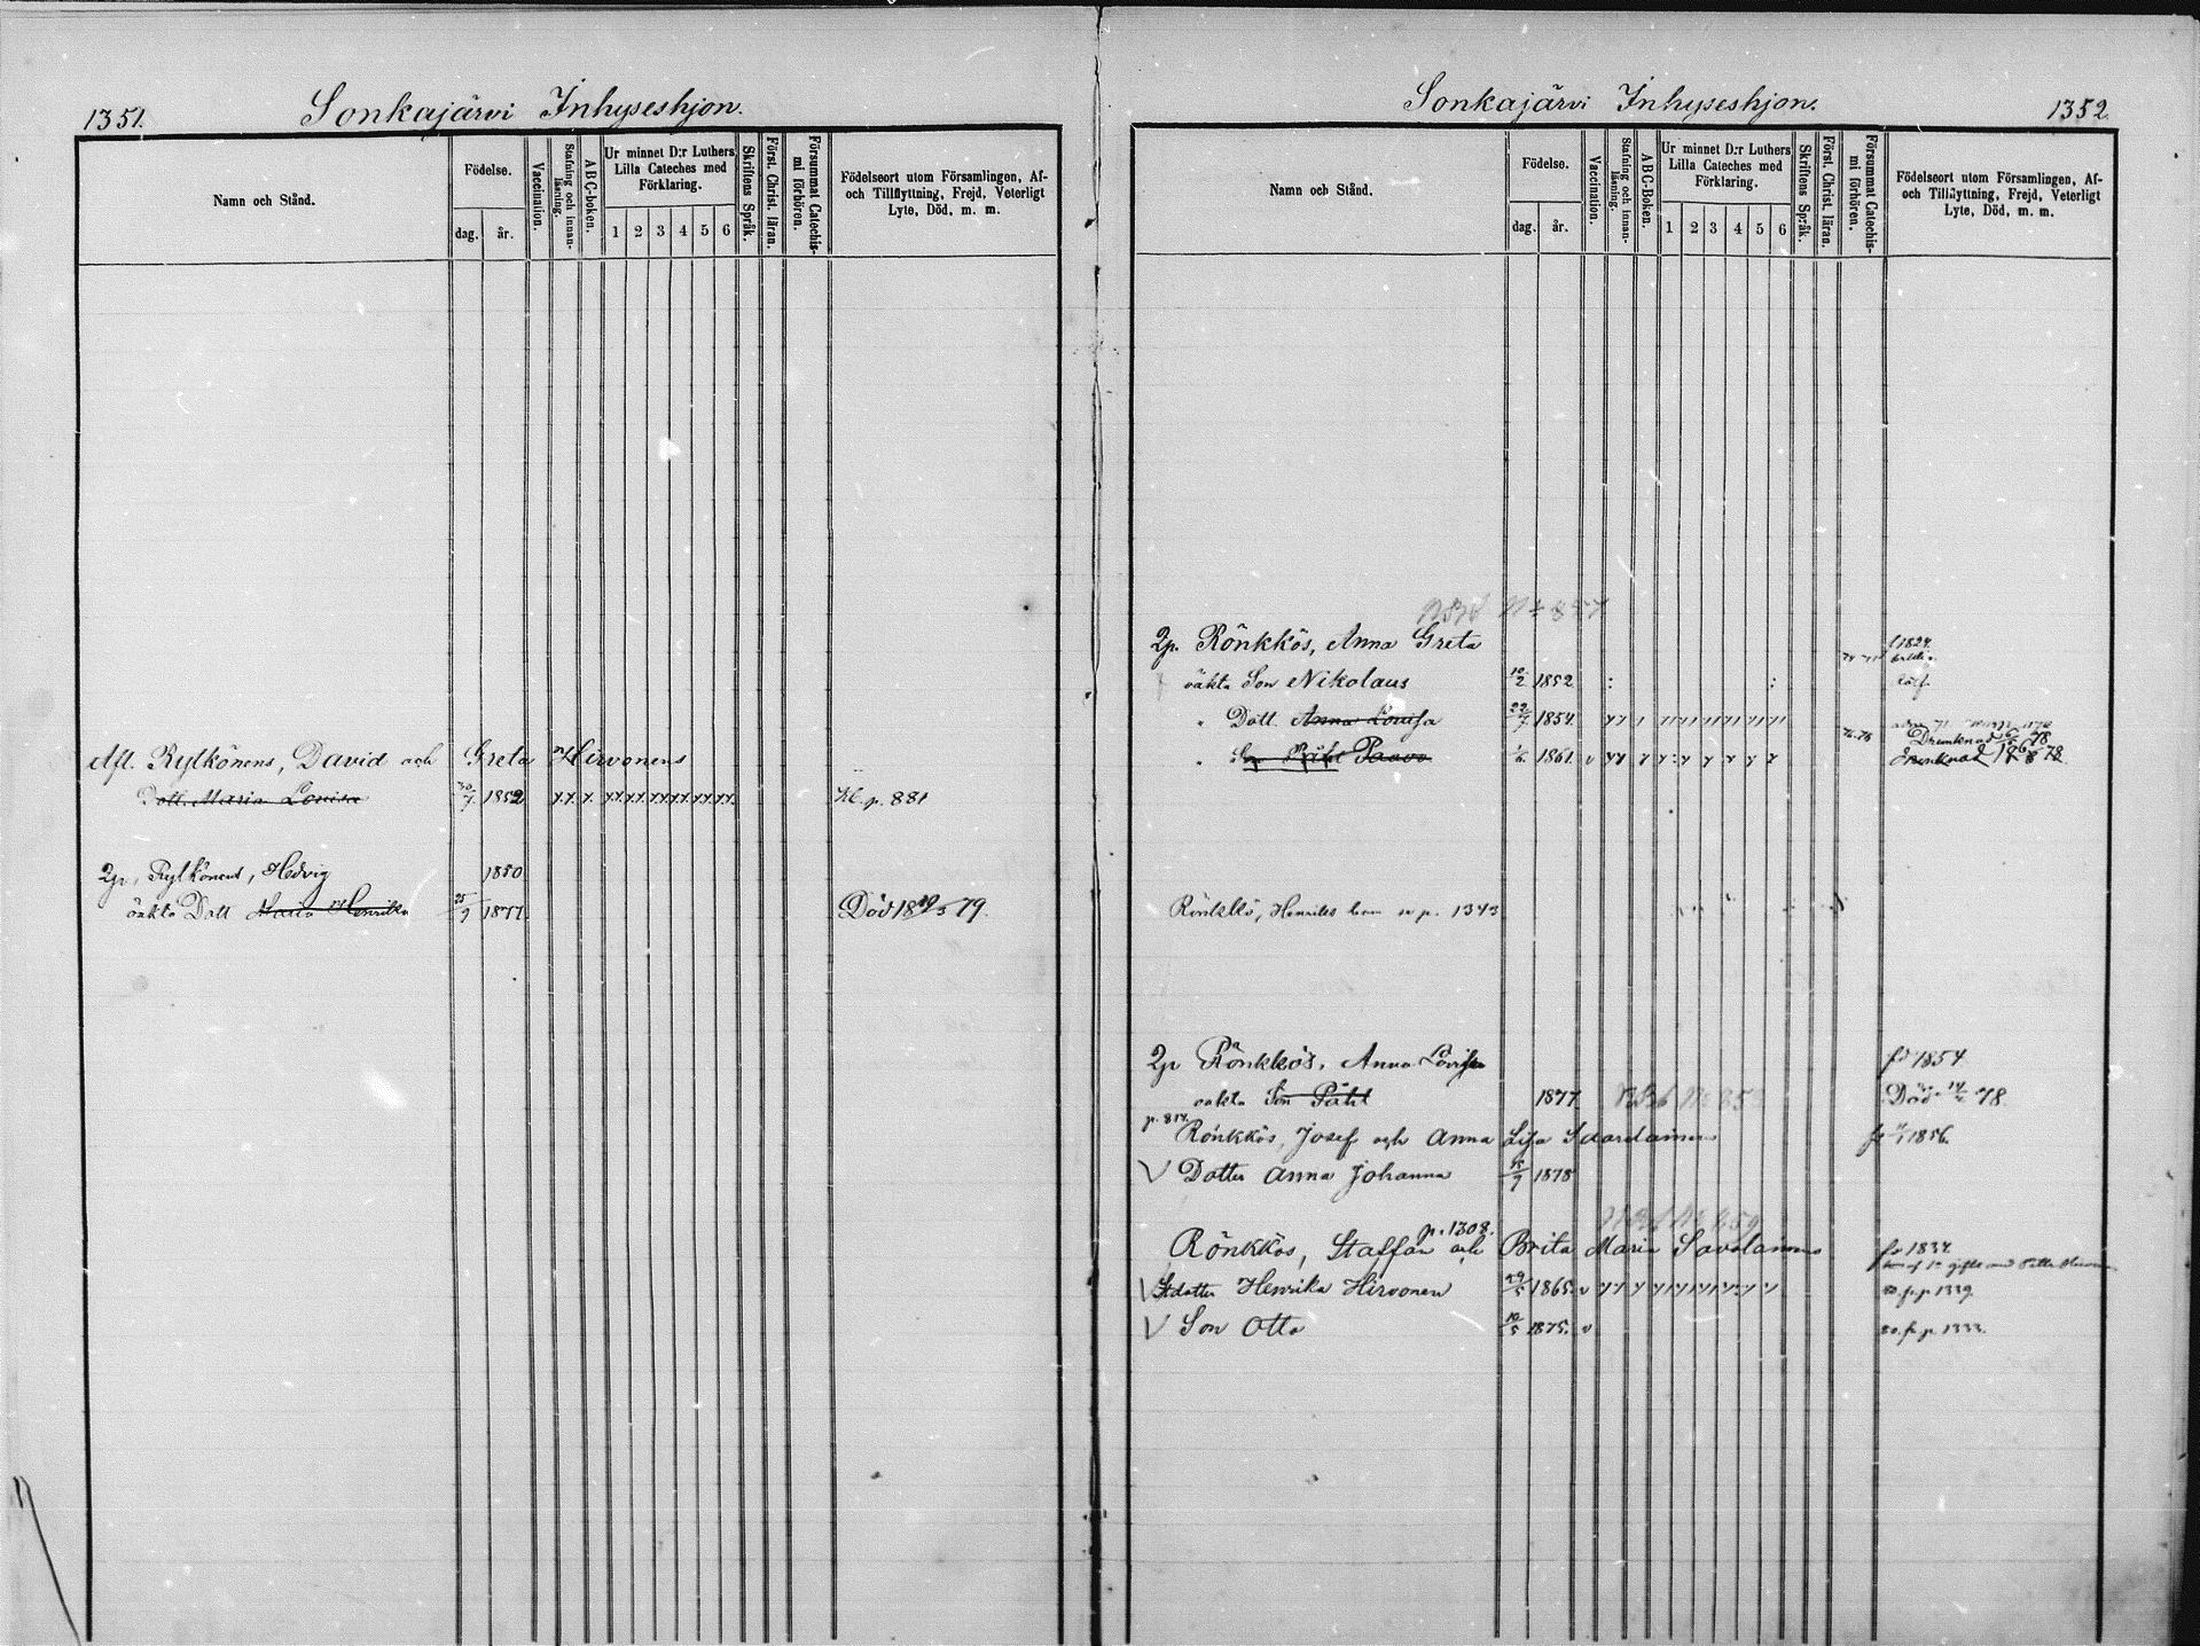 1351.
Sonkajärvi Inhyseshjon.
Namn och Stånd.
Födelse.
dag. år.
Vaccination.
Stafning och innan-läsning.
ABC-boken.
Ur minnet D:r Luthers
Lilla Cateches med
Förklaring.
1 2 3 4 5 6
Skriftens Språk.
Först. Christ. läran.
Försummat Catechis-mi förhören.
Födelseort utom Församlingen, Af-
och Tillflyttning, Frejd, Veterligt
Lyte, Död, m. m.
Afl. Rytkönens, David och Greta Hirvonens
Dott. Maria Lovisa 30/7 1852 p. 881
Qp. Rytkönens, Hedvig 1850
oäkta Dott Maria Henrika 25/9 1877 Död 18 19/5 79.
Sonkajärvi Inhyseshjon.
1352.
Namn och Stånd.
Födelse.
dag. år.
Vaccination.
Stafning och innan-läsning.
ABC-Boken.
Ur minnet D:r Luthers
Lilla Cateches med
Förklaring.
1 2 3 4 5 6
Skriftens Språk.
Först. Christ. läran.
Försummat Catechis-mi förhören.
Födelseort utom Församlingen, Af-
och Tillflyttning, Frejd, Veterligt
Lyte, Död, m. m.
Qp. Rönkkös, Anna Greta f 1824.
oäkta Son Nikolaus 10/2 1852
" Dott. Anna Lovisa 22/7 1854
Drunknad 78
" Son Påhl Paavo 1/6 1861 v Drunknad 18 78
Rönkkö, Henriks barn se p. 1343
Qp Rönkkös, Anna Lovisa fd 1854
oäkta Son Påhl 1877 Död 78
p. 817
Rönkkös, Josef och Anna Lisa 1856.
V Dotter Anna Johanna 15/9 1878
p. 1308.
Rönkkös, Staffan och Brita Maria Savolainens fd 1834
V Stdotter Henrika Hirvonen 29/5 1865. v p 1339
V Son Otto 10/5 1875. v 80. fr p. 1333.